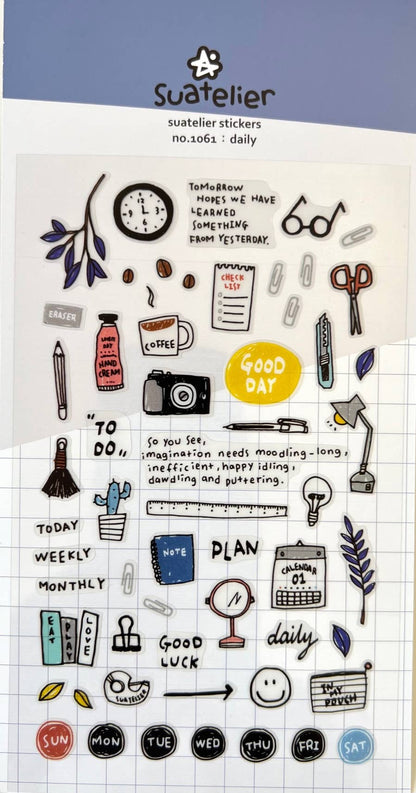 suatelier
suatelier stickers
no.1061 : daily
TOMORROW
HOPES WE HAVE
LEARNED
SOMETHING
FROM YESTERDAY.
CHECK
LIST
ERASER
LOVELY
DAY
HAND
CREAM
COFFEE
GOOD
DAY
"TO
DO"
So you see,
imagination needs moodling-long,
inefficient, happy idling,
dawdling and puttering.
TODAY
WEEKLY
MONTHLY
NOTE
PLAN
CALENDAR
01
EAT
PLAY
LOVE
GOOD
LUCK
daily
SUATELIER
IN
MY
POUCH
SUN
MON
TUE
WED
THU
FRI
SAT